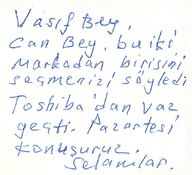 Vasıf Bey,
Can Bey, bu iki
markadan birisini
seçmenizi söyledi
Toshiba'dan vaz
geçti. Pazartesi
konuşuruz.
Selamlar.